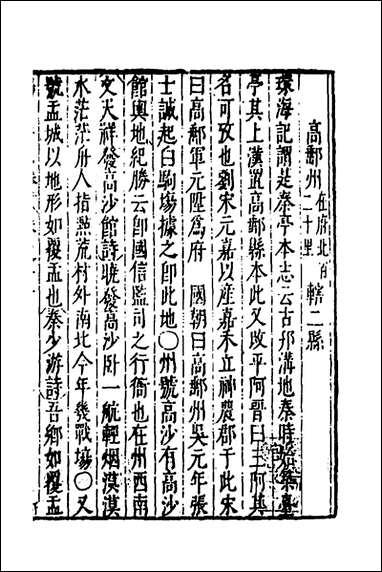 高郵州在府北百二十里轄二縣
琭海記謂是秦亭本志云古邗溝地秦時始築臺
亭其上漢置高郵縣本此又攷平阿晉曰三阿其
名可攷也劉宋元嘉以產嘉禾立神農郡于此宋
曰高郵軍元陞為府　國朝曰高郵州吳元年張
士誠起白駒場據之卽此地〇州號高沙有高沙
館輿地紀勝云卽國信監司之行衙也在州西南
文天祥發高沙館詩曉發高沙臥一航輕烟漠漠
水茫茫舟人指㸃荒村外南北今年幾戰塲〇又
號盂城以地形如覆盂也秦少游詩吾鄉如覆盂